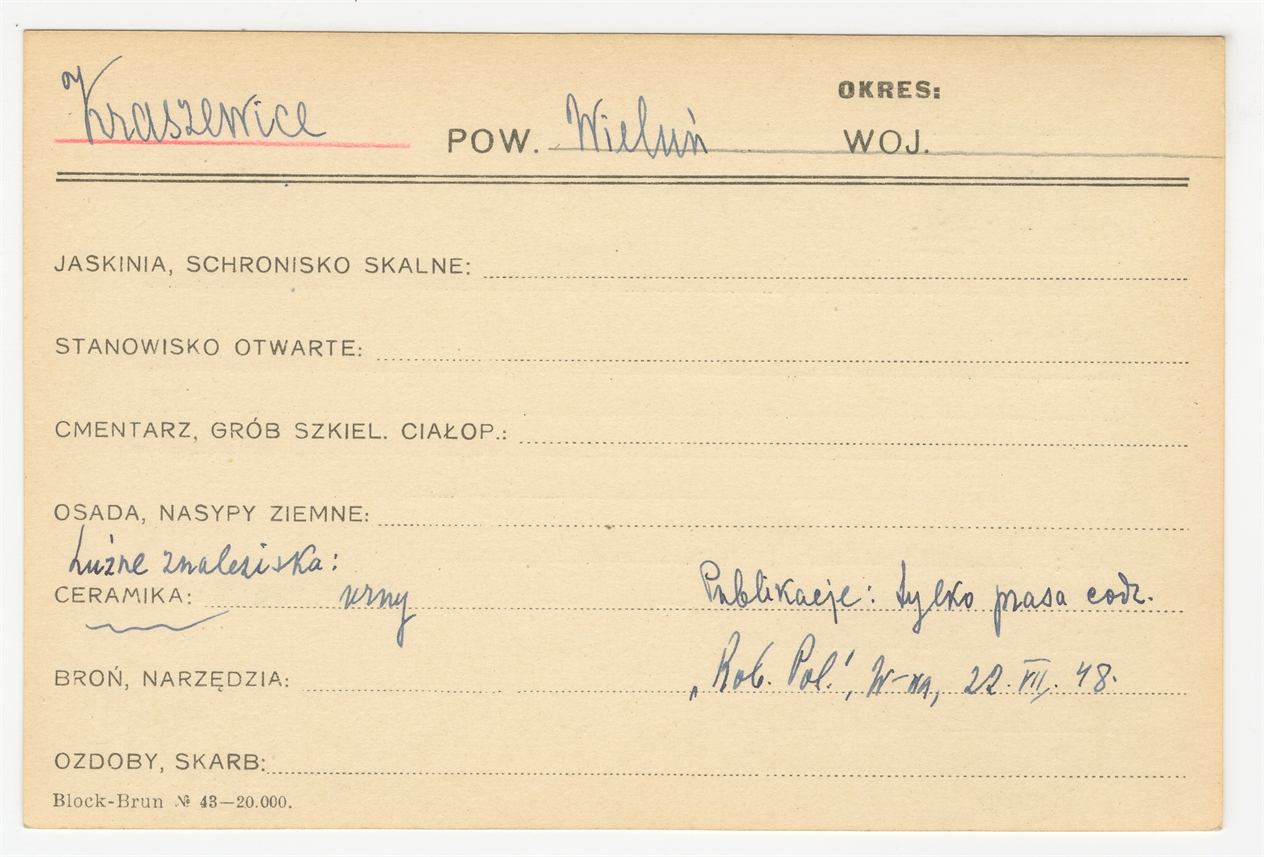 OKRES:
Kraszewice POW. Wieluń WOJ.
JASKINIA, SCHRONISKO SKALNE:
STANOWISKO OTWARTE:
CMENTARZ, GRÓB SZKIEL. CIAŁOP.:
OSADA, NASYPY ZIEMNE:
Luźne znaleziska:
CERAMIKA: urny Publikacje: tylko prasa codz.
BROŃ, NARZĘDZIA: „Rob. Pol.", W-wa, 22.VII.48.
OZDOBY, SKARB:
Block-Brun № 43—20.000.